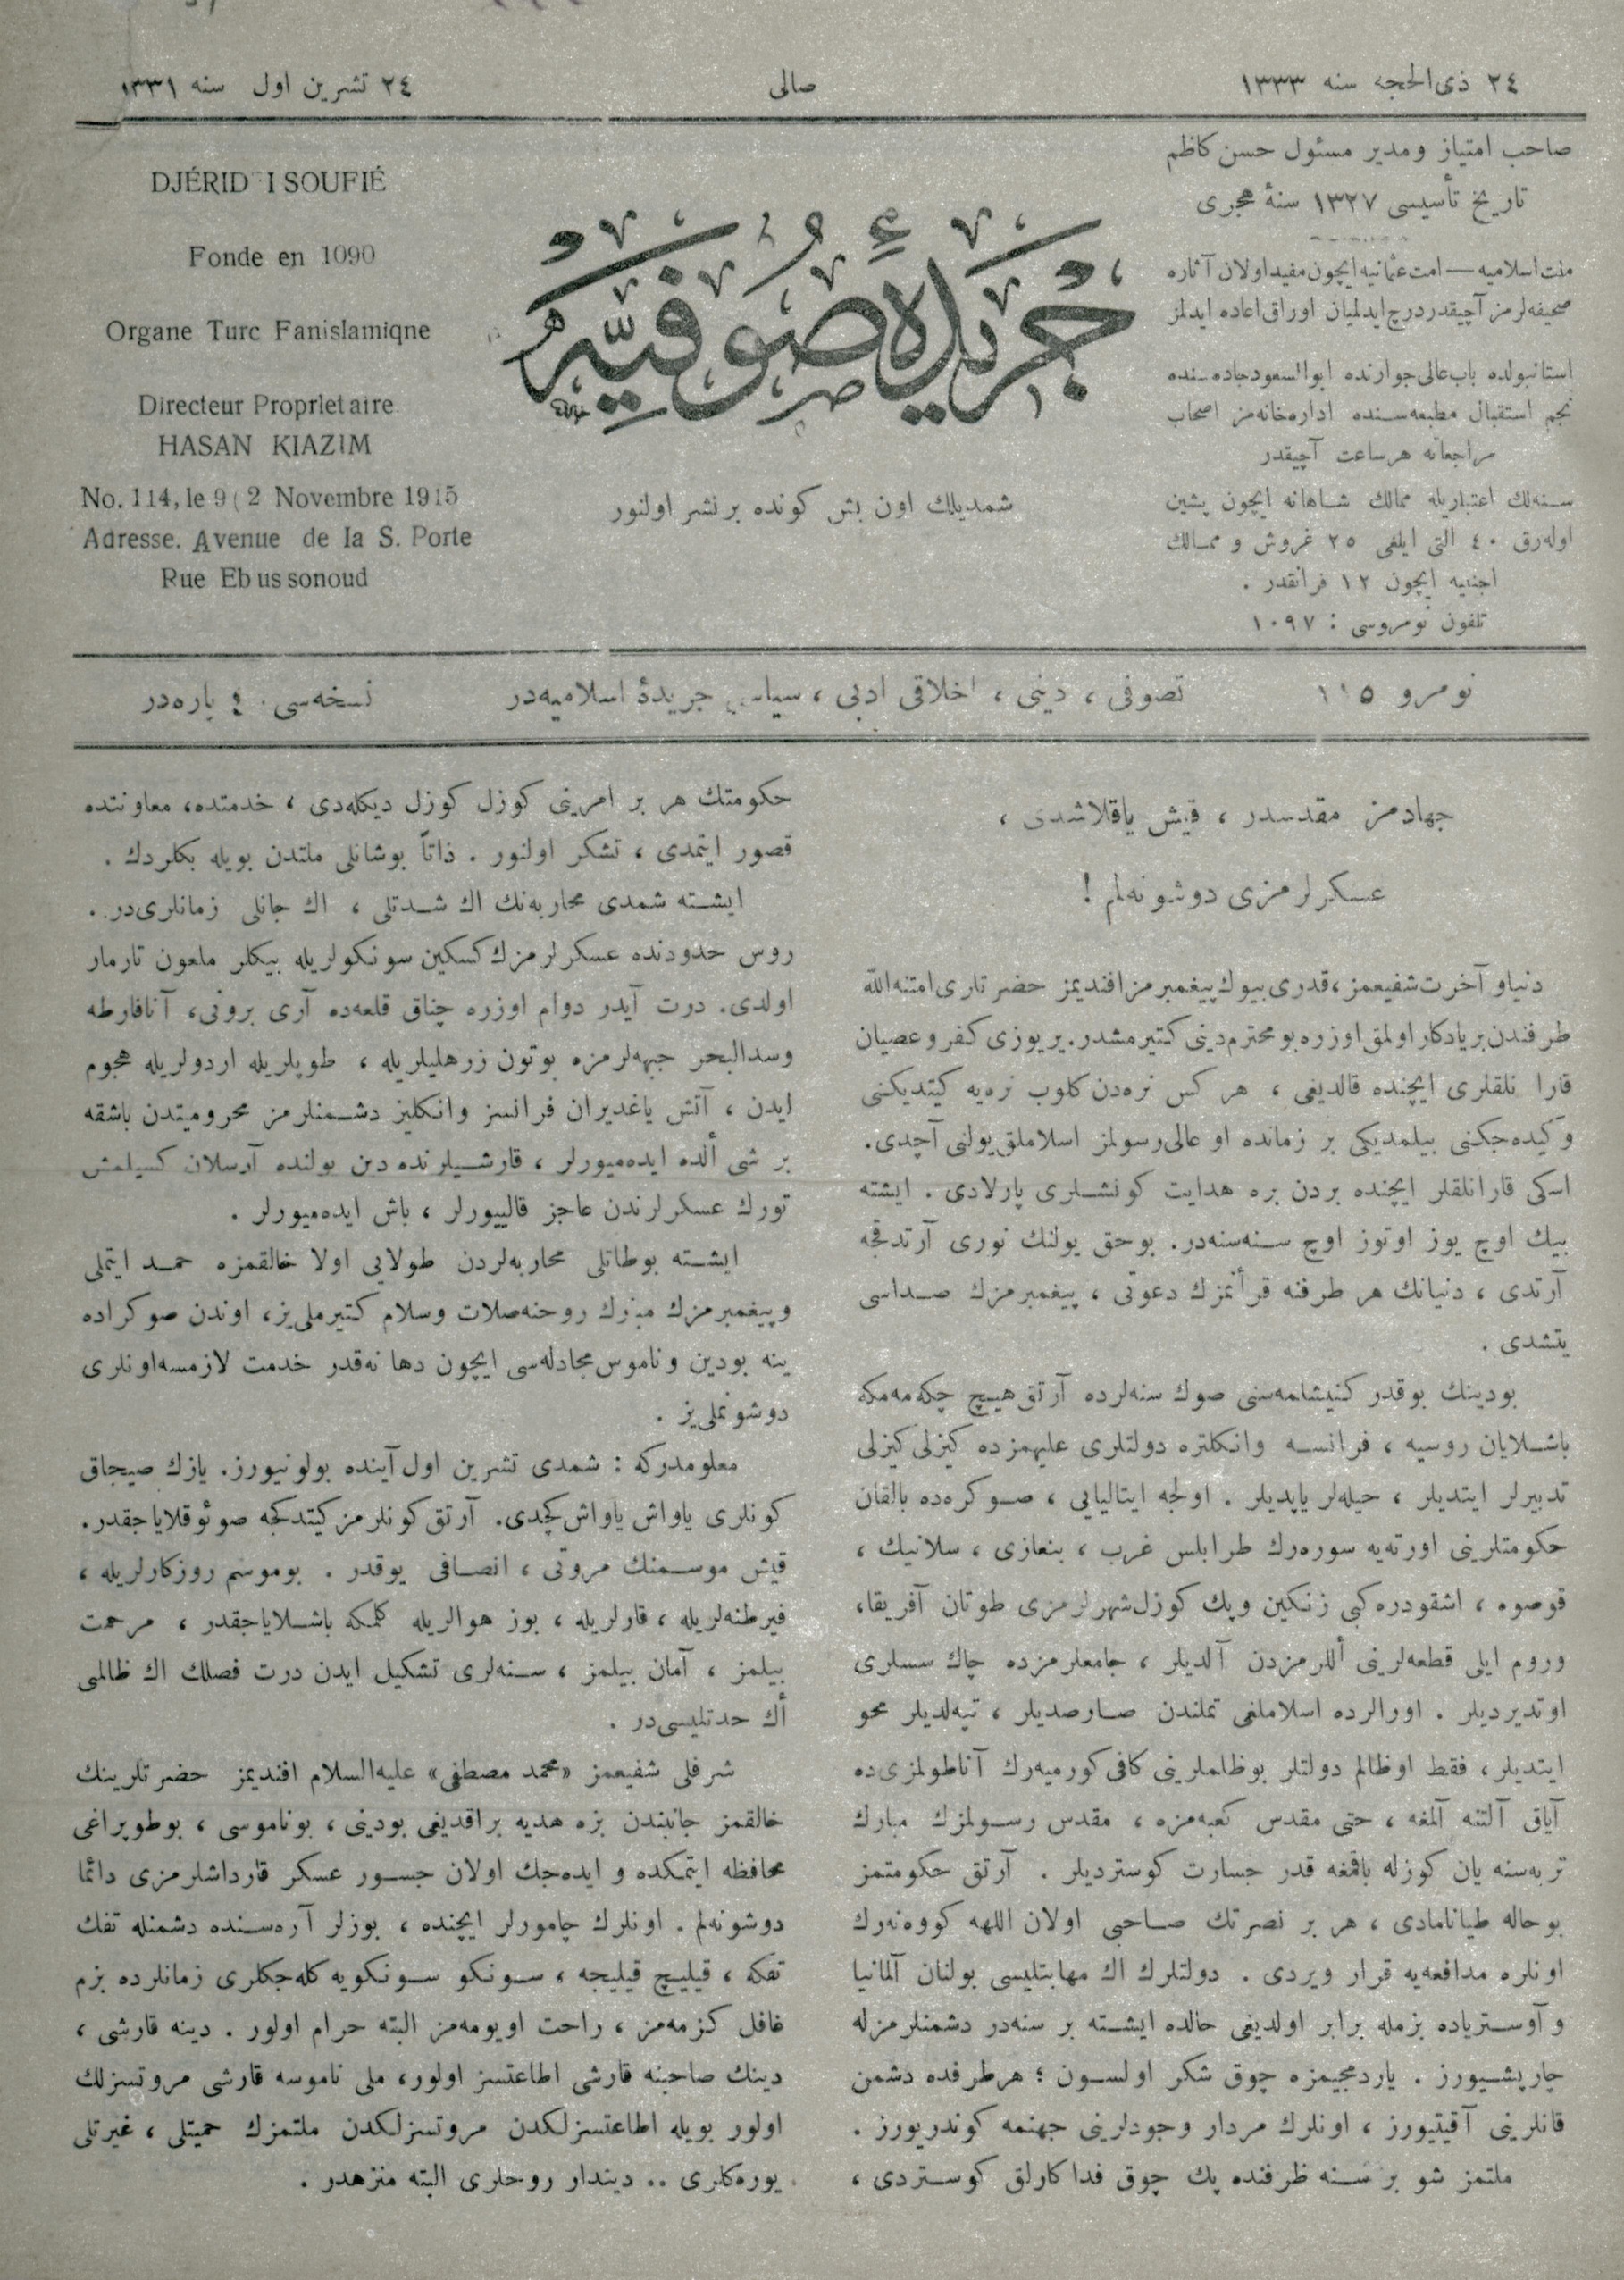 ٢٤ ذی‌الحجه سنه ١٣٣٣
صالی
٢٤ تشرین اول سنه ١٣٣١
صاحب امتیاز و مدیر مسئول حسن كاظم
تاریخ تأسیسی ١٣٢٧ سنۀ هجری
ملت اسلامیه — امت عثمانیه ایچون مفید اولان آثاره
صحیفه‌لرمز آچیقدر درج ایدلمیان اوراق اعاده ایدلمز
استانبولده باب‌عالی جوارنده ابوالسعود جاده‌سنده
نجم استقبال مطبعه‌سنده اداره‌خانه‌مز اصحاب
مراجعاته هر ساعت آچیقدر
سنه‌لك اعتباریله ممالك شاهانه ایچون پشین
اوله‌رق ٤٠ التی ایلغی ٢٥ غروش و ممالك
اجنبیه ایچون ١٢ فرانقدر .
تلفون نومروسی : ١٠٩٧
جریدۀ صوفیه
شمدیلك اون بش كونده بر نشر اولنور
DJÉRID I SOUFIÉ
Fonde en 1090
Organe Turc Fanislamiqne
Directeur Proprietaire
HASAN KIAZIM
No. 114, le 9 ( 2 Novembre 1915
Adresse. Avenue de la S. Porte
Rue Eb us sonoud
نومرو ١١٥
تصوفی ، دینی ، اخلاقی ادبی ، سیاسی جریدۀ اسلامیه‌در
نسخه‌سی ٤٠ پاره‌در
جهادمز مقدسدر ، قیش یاقلاشدی ،
عسكرلرمزی دوشونه‌لم !
دنیا و آخرت شفیعمز ، قدری بیوك پیغمبرمز افندیمز حضرتلری امتنه الله
طرفندن بر یادكار اولمق اوزره بو محترم دینی كتیرمشدر. یر یوزی كفر و عصیان
قارا نلقلری ایچنده قالدیغی ، هر كس نره‌دن كلوب نره‌یه كیتدیكنی
و كیده‌جكنی بیلمدیكی بر زمانده او عالی رسولمز اسلاملق یولنی آچدی.
اسكی قارانلقلر ایچنده بردن بره هدایت كونشلری پارلادی . ایشته
بیك اوچ یوز اوتوز اوچ سنه‌سنه‌در. بو حق یولنك نوری آرتدقجه
آرتدی ، دنیانك هر طرفنه قرأنمزك دعوتی ، پیغمبرمزك صداسی
یتشدی .
بو دینك بوقدر كنیشلمه‌سنی صوك سنه‌لرده آرتق هیچ چكه‌مه‌مكه
باشلایان روسیه ، فرانسه وانكلتره دولتلری علیهمزده كیزلی كیزلی
تدبیرلر ایتدیلر ، حیله‌لر یاپدیلر . اولجه ایتالیایی ، صوكره‌ده بالقان
حكومتلرینی اورته‌یه سوره‌رك طرابلس غرب ، بنغازی ، سلانیك ،
قوصوه ، اشقودره كبی زنكین و پك كوزل شهرلرمزی طوتان آفریقا،
وروم ایلی قطعه‌لرینی أللرمزدن آلدیلر ، جامعلرمزده چاك سسلری
اوتدیردیلر . اورالرده اسلاملغی تملندن صارصدیلر ، تپه‌لدیلر محو
ایتدیلر، فقط او ظالم دولتلر بو ظلملرینی كافی كورمیه‌رك آناطولمزی‌ده
آیاق آلتنه آلمغه ، حتی مقدس كعبه‌مزه ، مقدس رسولمزك مبارك
تربه‌سنه یان كوزله باقمغه قدر جسارت كوستردیلر . آرتق حكومتمز
بوحاله طیانامادی ، هر بر نصرتك صاحبی اولان اللهه كووه‌نه‌رك
اونلره مدافعه‌یه قرار ویردی . دولتلرك اك مهابتلیسی بولنان آلمانیا
و آوستریاده بزمله برابر اولدیغی حالده ایشته بر سنه‌در دشمنلرمزله
چارپشیورز . یاردمجیمزه چوق شكر اولسون ؛ هر طرفده دشمن
قانلرینی آقیتیورز ، اونلرك مردار وجودلرینی جهنمه كوندریورز .
ملتمز شو بر سنه ظرفنده پك چوق فداكارلق كوستردی ،
حكومتك هر بر امرینی كوزل كوزل دیكله‌دی ، خدمتده، معاونتده
قصور ایتمدی ، تشكر اولنور . ذاتاً بوشانلی ملتدن بویله بكلردك .
ایشته شمدی محاربه‌نك اك شدتلی ، اك جانلی زمانلری‌در .
روس حدودنده عسكرلرمزك كسكین سونكولریله بیكلر ملعون تارمار
اولدی. درت آیدر دوام اوزره چناق قلعه‌ده آری برونی، آنافارطه
وسدالبحر جبهه‌لرمزه بوتون زرهلیلریله ، طوپلریله اردولریله هجوم
ایدن ، آتش یاغدیران فرانسز وانكلیز دشمنلرمز محرومیتدن باشقه
بر شی ألده ایده‌میورلر ، قارشیلرنده دین یولنده آرسلان كسیلمش
تورك عسكرلرندن عاجز قالییورلر ، باش ایده‌میورلر .
ایشته بوطاتلی محاربه‌لردن طولایی اولا خالقمزه حمد ایتملی
وپیغمبرمزك مبارك روحنه صلات وسلام كتیرملی‌یز، اوندن صوكراده
ینه بودین وناموس مجادله‌سی ایچون دها نه‌قدر خدمت لازمسه اونلری
دوشونملی‌یز .
معلومدركه : شمدی تشرین اول آینده بولونیورز. یازك صیجاق
كونلری یاواش یاواش كچدی. آرتق كونلرمز كیتدكجه صوئوقلایاجقدر.
قیش موسمنك مروتی ، انصافی یوقدر . بوموسم روزكارلریله ،
فیرطنه‌لریله ، قارلریله ، بوز هوالریله كلمكه باشلایاجقدر ، مرحمت
بیلمز ، آمان بیلمز ، سنه‌لری تشكیل ایدن درت فصلك اك ظالمی
أك حدتلیسی‌در .
شرفلی شفیعمز «محمد مصطفی» علیه‌السلام افندیمز حضرتلرینك
خالقمز جانبندن بزه هدیه براقدیغی بودینی ، بوناموسی ، بوطوپراغی
محافظه ایتمكده و ایده‌جك اولان جسور عسكر قارداشلرمزی دائما
دوشونه‌لم . اونلرك چامورلر ایچنده ، بوزلر آره‌سنده دشمنله تفك
تفكه ، قیلیچ قیلیجه ، سونكو سونكویه كله‌جكلری زمانلرده بزم
غافل كزمه‌مز ، راحت اویومه‌مز البته حرام اولور . دینه قارشی ،
دینك صاحبنه قارشی اطاعتسز اولور، ملی ناموسه قارشی مروتسزلك
اولور بویله اطاعتسزلكدن مروتسزلكدن ملتمزك حمیتلی ، غیرتلی
یوره‌كلری .. دیندار روحلری البته منزهدر .